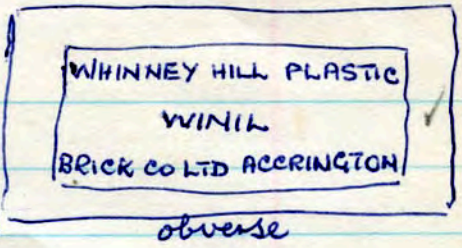 WHINNEY HILL PLASTIC
WINIL
BRICK CO LTD ACCRINGTON
obverse